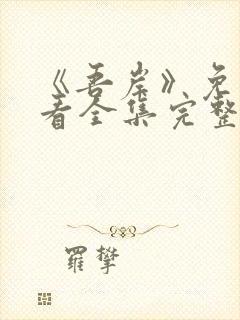 《吾岸》免
看全集完整
羅攀